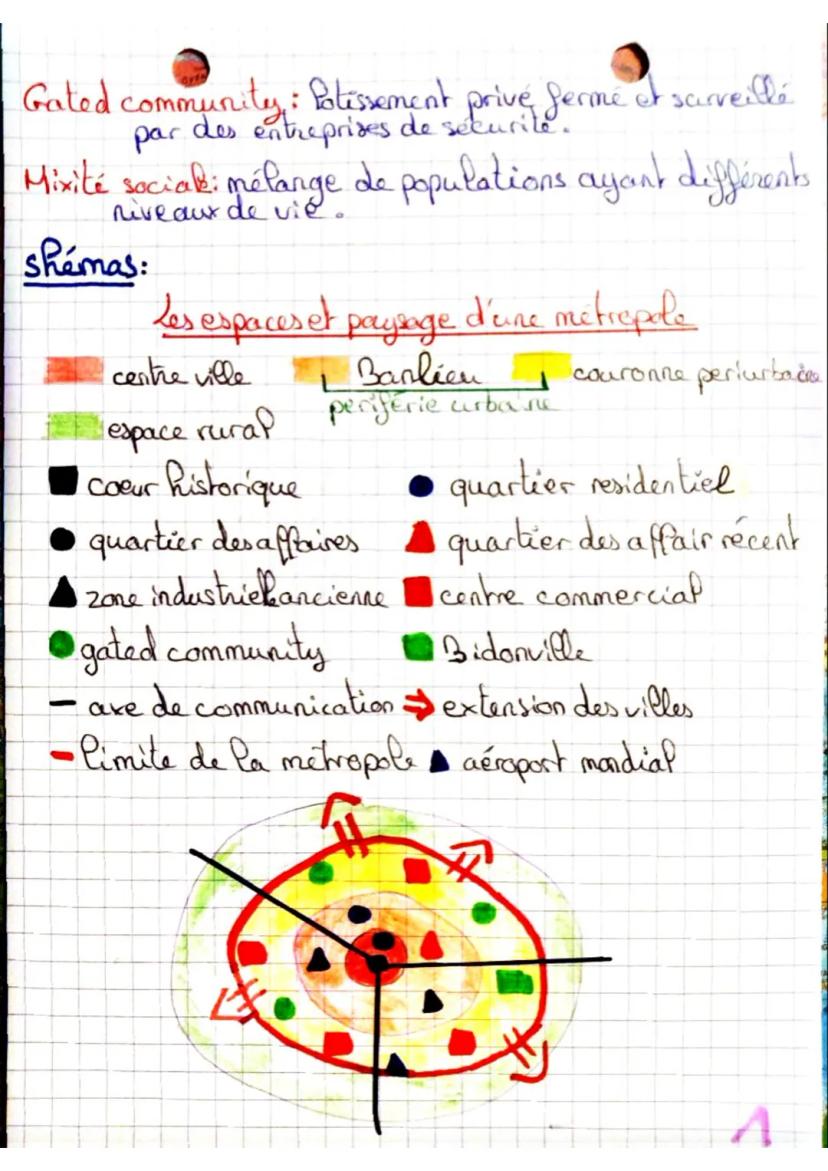 Gated community : lotissement privé fermé et surveillé
par des entreprises de sécurité.
Mixité sociale : mélange de populations ayant différents
niveaux de vie.
shémas:
Les espaces et paysage d'une métropole
centre ville Banlieu couronne periurbaine
periférie urbaine
espace rural
coeur historique quartier residentiel
quartier des affaires quartier des affair récent
zone industrielle ancienne centre commercial
gated community Bidonville
axe de communication extension des villes
limite de la métropole aéroport mondial
1